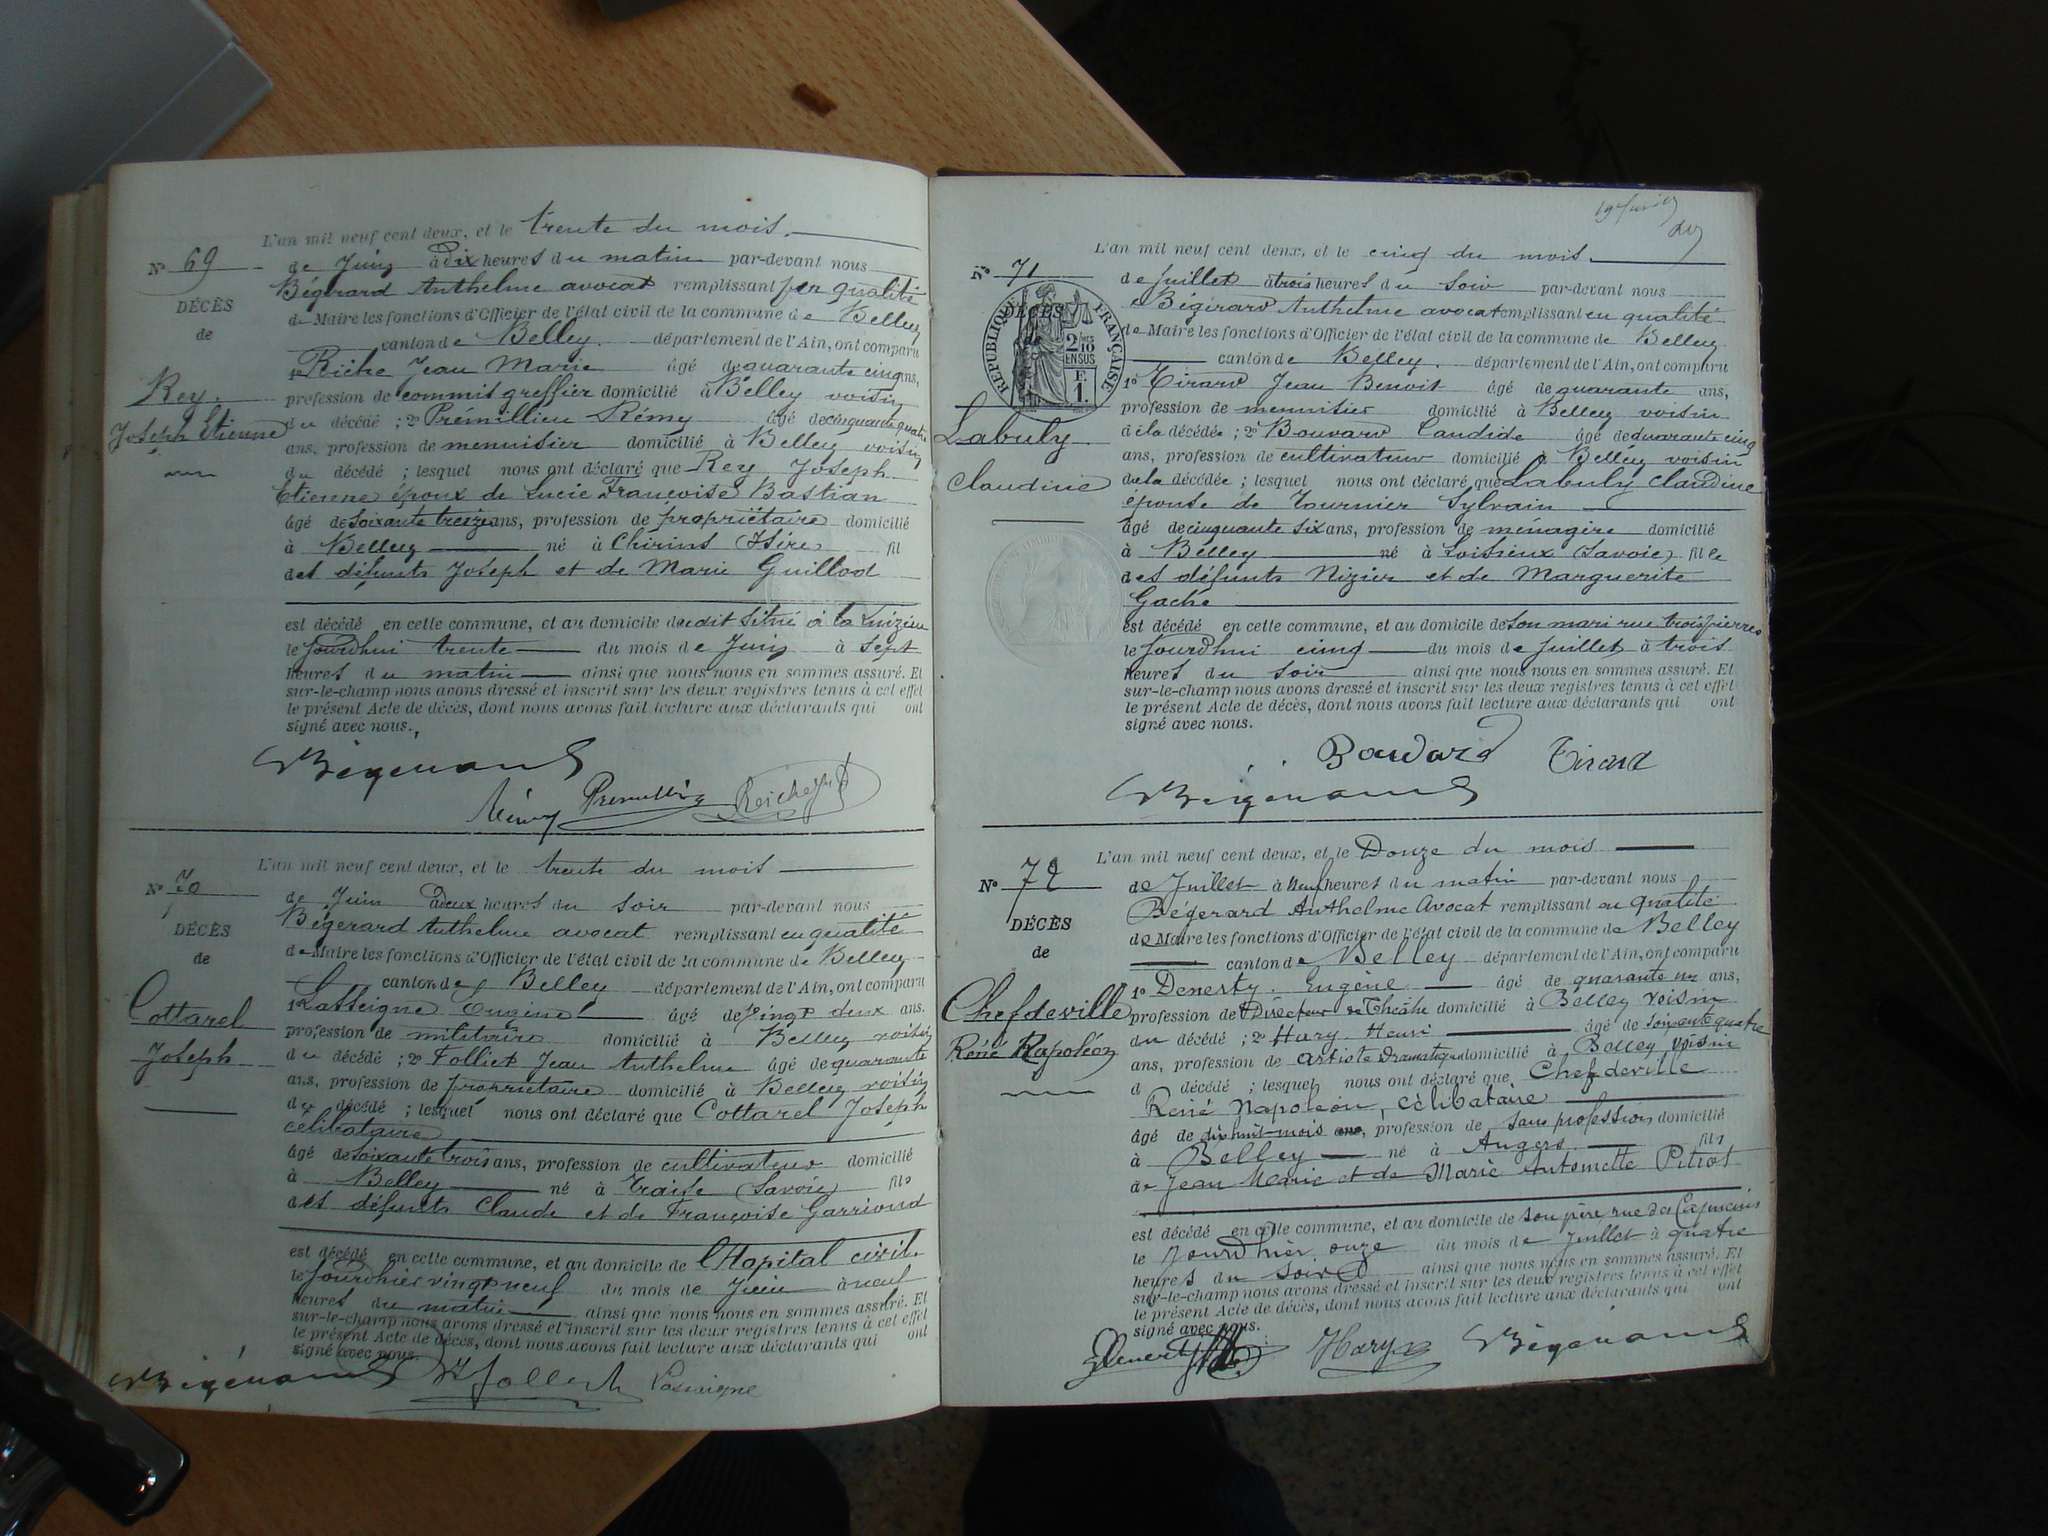 L'an mil neuf cent deux, et le trente du mois
Nº 69
de Juin à dix heures du matin par-devant nous
Bégerard Anthelme avocat remplissant en qualité
DÉCÈS
de Maire les fonctions d'Officier de l'état civil de la commune de Belley
de
canton de Belley département de l'Ain, ont comparu
1º Riche Jean Marie âgé de quarante cinq ans,
Rey
profession de commis greffier domicilié à Belley voisin
Joseph Etienne
du décédé ; 2º Prémillieu Rémy âgé de cinquante quatre
ans, profession de menuisier domicilié à Belley voisin
du décédé ; lesquels nous ont déclaré que Rey Joseph
Etienne époux de Lucie Françoise Bastian
âgé de soixante treize ans, profession de propriétaire domicilié
à Belley né à Chirins (Isère) fil
des défunts Joseph et de Marie Guillod
est décédé en cette commune, et au domicile dudit situé à la
le jourd'hui trente du mois de Juin à sept
heures du matin ainsi que nous nous en sommes assuré. Et
sur-le-champ nous avons dressé et inscrit sur les deux registres tenus à cet effet
le présent Acte de décès, dont nous avons fait lecture aux déclarants qui ont
signé avec nous.
Bégerard
Rémy Premillieu
L'an mil neuf cent deux, et le trente du mois
Nº 70
de Juin à deux heures du soir par-devant nous
Bégerard Anthelme avocat remplissant en qualité
DÉCÈS
de Maire les fonctions d'Officier de l'état civil de la commune de Belley
de
canton de Belley département de l'Ain, ont comparu
1º Lasseigne Eugène âgé de vingt deux ans,
Cottarel
profession de militaire domicilié à Belley voisin
Joseph
du décédé ; 2º Folliet Jean Anthelme âgé de quarante
ans, profession de propriétaire domicilié à Belley voisin
du décédé ; lesquels nous ont déclaré que Cottarel Joseph
célibataire
âgé de soixante trois ans, profession de cultivateur domicilié
à Belley né à Traize (Savoie) fils
des défunts Claude et de Françoise Garrioud
est décédé en cette commune, et au domicile de l'Hopital civil
le jourd'hier vingt neuf du mois de Juin à neuf
heures du matin ainsi que nous nous en sommes assuré. Et
sur-le-champ nous avons dressé et inscrit sur les deux registres tenus à cet effet
le présent Acte de décès, dont nous avons fait lecture aux déclarants qui ont
signé avec nous
Bégerard Folliet Lasseigne
L'an mil neuf cent deux, et le cinq du mois
Nº 71
de Juillet à trois heures du soir par-devant nous
Bégerard Anthelme avocat remplissant en qualité
DÉCÈS
RÉPUBLIQUE FRANÇAISE
2/10 EN SUS
F. 1.
de Maire les fonctions d'Officier de l'état civil de la commune de Belley
canton de Belley département de l'Ain, ont comparu
1º Tirard Jean Benoit âgé de quarante ans,
profession de menuisier domicilié à Belley voisin
Labuly
de la décédée ; 2º Bouvard Candide âgé de quarante cinq
ans, profession de cultivateur domicilié à Belley voisin
Claudine
de la décédée ; lesquels nous ont déclaré que Labuly Claudine
épouse de Tournier Sylvain
âgé de cinquante six ans, profession de ménagère domicilié
à Belley né à Loisieux (Savoie) fille
des défunts Nizier et de Marguerite
Gache
est décédé en cette commune, et au domicile de son mari rue trois pierres
le jourd'hui cinq du mois de Juillet à trois
heures du soir ainsi que nous nous en sommes assuré. Et
sur-le-champ nous avons dressé et inscrit sur les deux registres tenus à cet effet
le présent Acte de décès, dont nous avons fait lecture aux déclarants qui ont
signé avec nous.
Bouvard Tirard
Bégerard
L'an mil neuf cent deux, et le Douze du mois
Nº 72
de Juillet à neuf heures du matin par-devant nous
Bégerard Anthelme Avocat remplissant en qualité
DÉCÈS
de Maire les fonctions d'Officier de l'état civil de la commune de Belley
de
canton de Belley département de l'Ain, ont comparu
1º Denerty Eugène âgé de quarante un ans,
Chefdeville
profession de Directeur de Théâtre domicilié à Belley voisin
René Napoléon
du décédé ; 2º Hary Henri âgé de soixante quatre
ans, profession de artiste dramatique domicilié à Belley voisin
d décédé ; lesquels nous ont déclaré que Chefdeville
René Napoléon, célibataire
âgé de dix huit mois ans, profession de sans profession domicilié
à Belley né à Angers fils
de Jean Marie et de Marie Antoinette Pitrot
est décédé en cette commune, et au domicile de son père rue des Capucins
le jourd'hier onze du mois de Juillet à quatre
heures du soir ainsi que nous nous en sommes assuré. Et
sur-le-champ nous avons dressé et inscrit sur les deux registres tenus à cet effet
le présent Acte de décès, dont nous avons fait lecture aux déclarants qui ont
signé avec nous.
Hary Bégerard